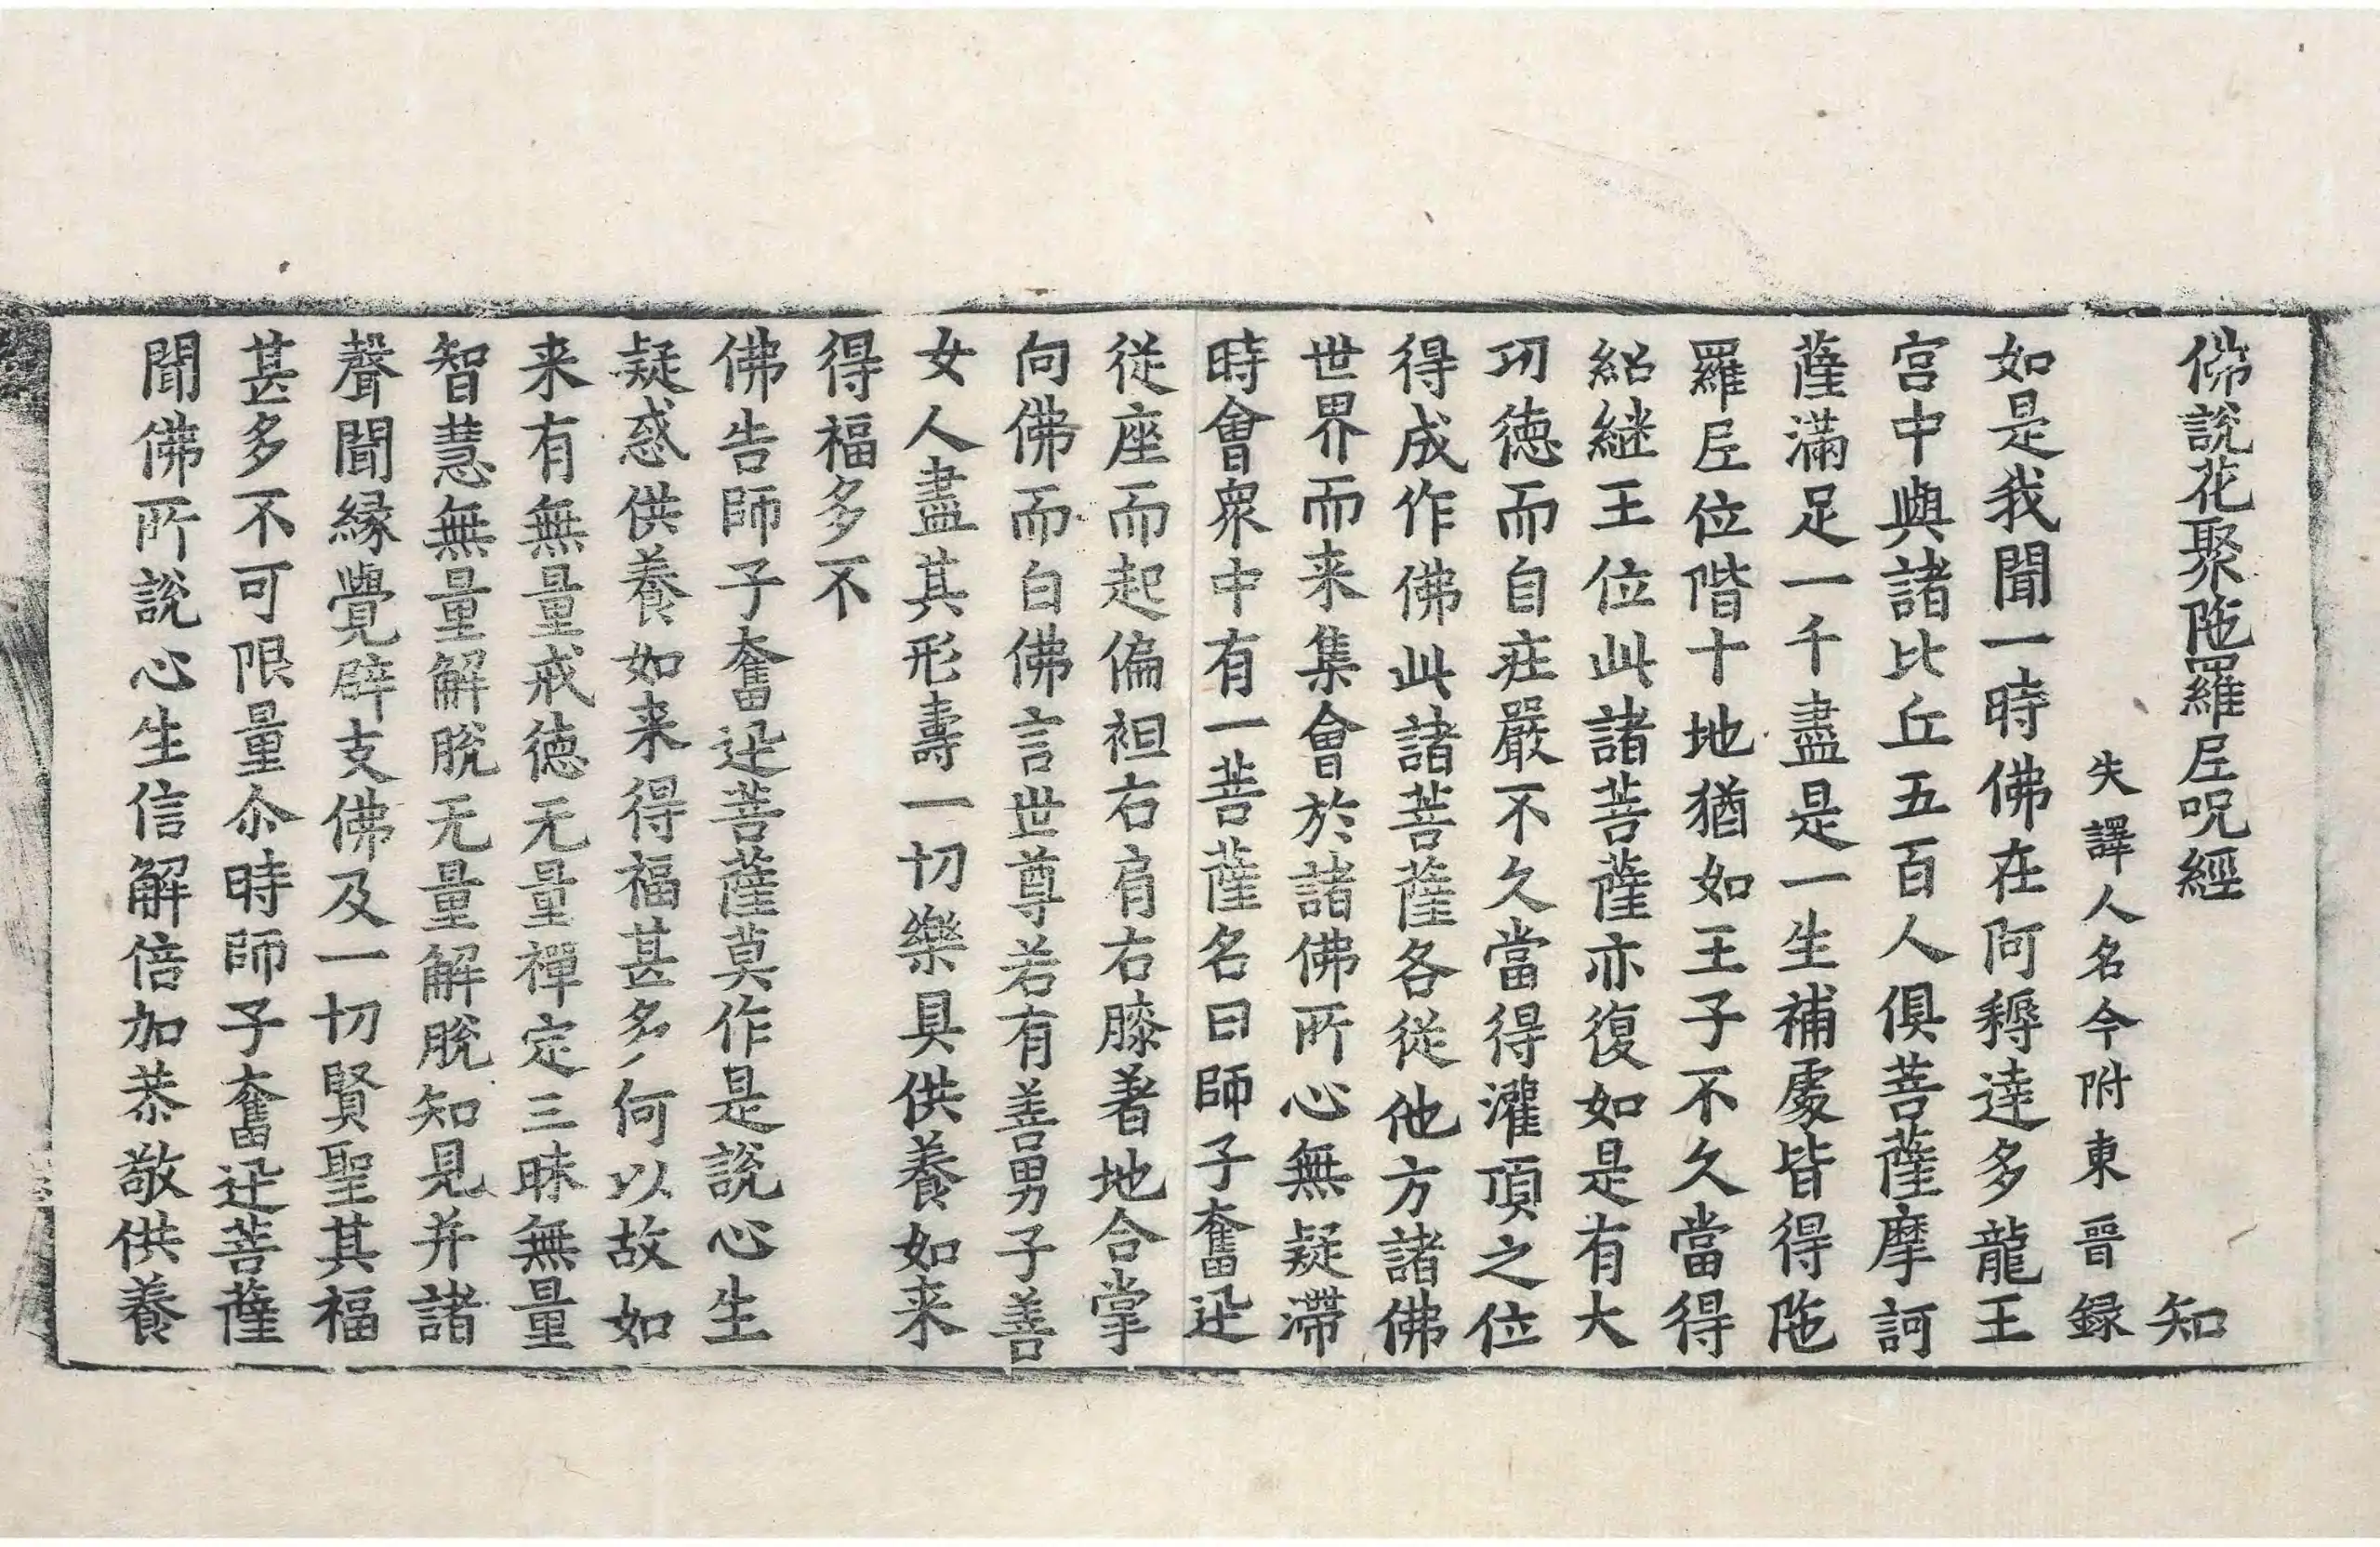 佛說花聚陁羅𡰱呪經　知
失譯人名今附東晉録
如是我聞一時佛在阿耨達多龍王
宮中與諸比丘五百人俱菩薩摩訶
薩滿足一千盡是一生補處皆得陁
羅𡰱位階十地猶如王子不久當得
紹継王位此諸菩薩亦復如是有大
功徳而自莊嚴不久當得灌頂之位
得成作佛此諸菩薩各從他方諸佛
世界而来集會於諸佛所心無疑滯
時會衆中有一菩薩名曰師子奮迅
從座而起偏袒右肩右膝著地合掌
向佛而白佛言世尊若有善男子善
女人盡其形壽一切樂具供養如来
得福多不
佛告師子奮迅菩薩莫作是說心生
疑惑供養如来得福甚多何以故如
来有無量戒徳无量禪定三昧無量
智慧無量解脫无量解脫知見并諸
聲聞縁覺辟支佛及一切賢聖其福
甚多不可限量尒時師子奮迅菩薩
聞佛所說心生信解倍加恭敬供養